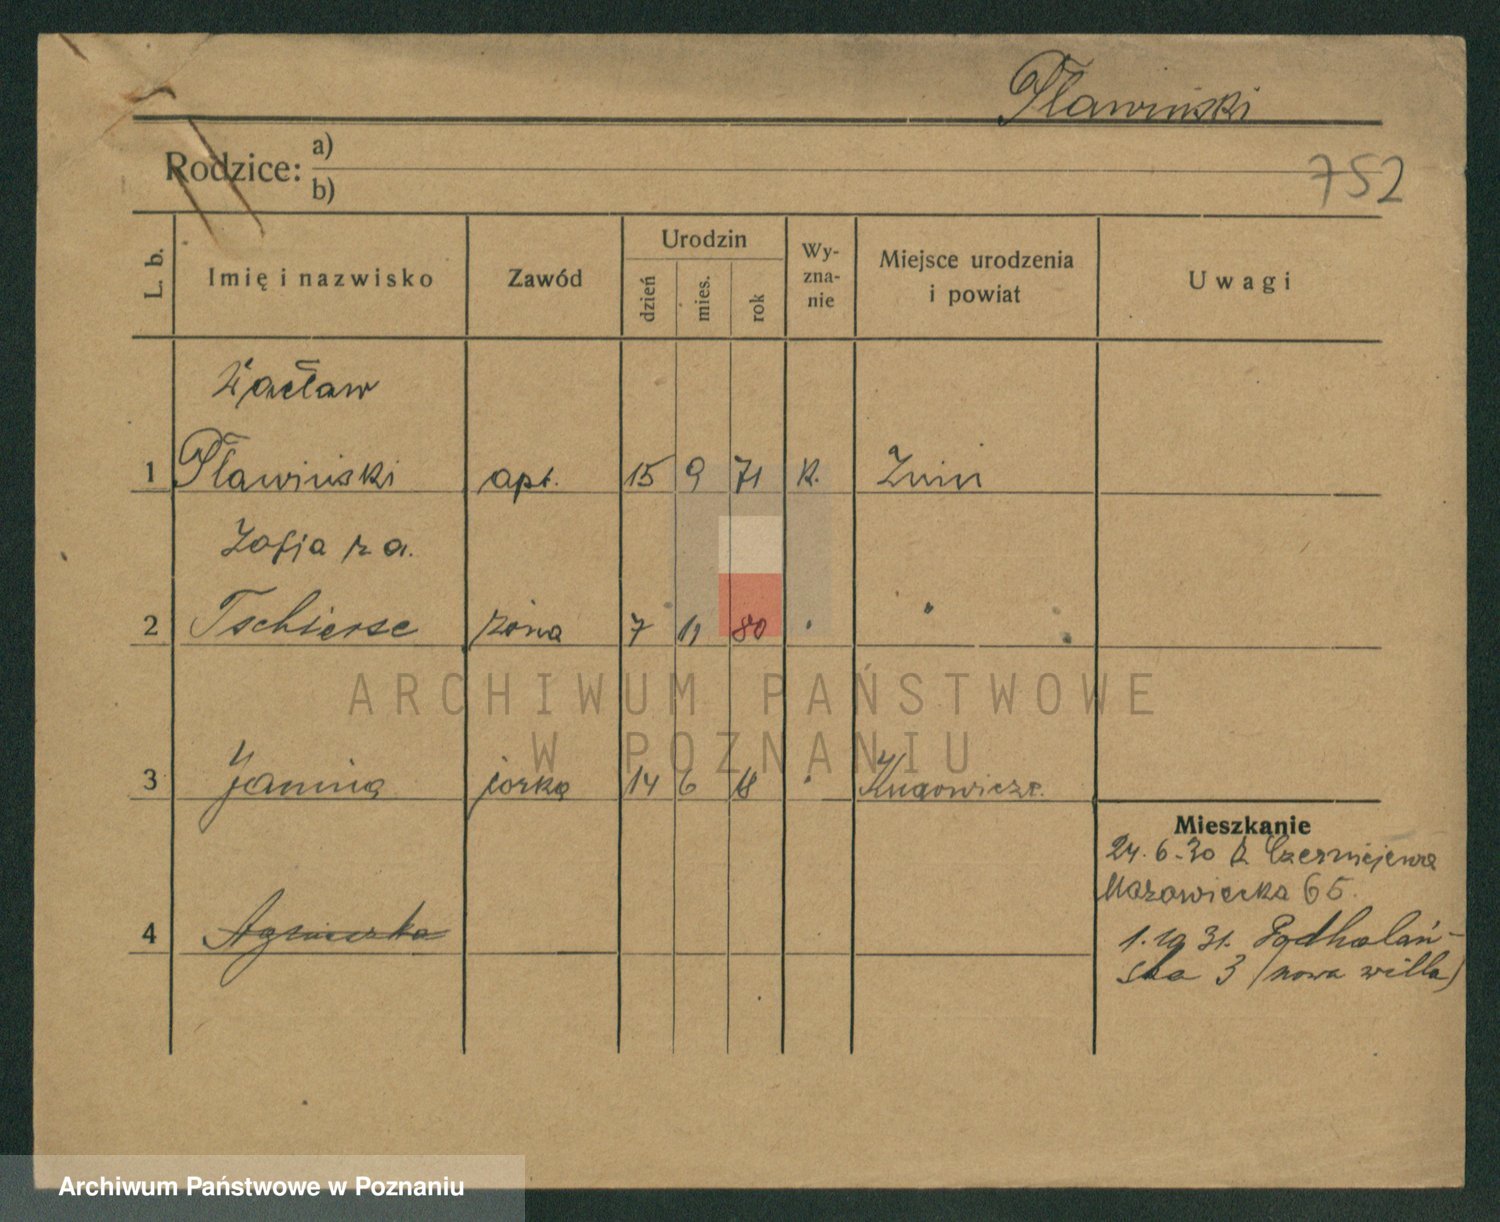 Pławiński
752
Rodzice: a)
b)
L. b.
Imię i nazwisko
Zawód
Urodzin
dzień
mies.
rok
Wy-
zna-
nie
Miejsce urodzenia
i powiat
Uwagi
Wacław
1 Pławiński apt. 15 9 71 k. Żnin
Zofja z d.
2 Tschierse żona 7 11 80
3 Janina córka 14 6 18
Mieszkanie
24.6.30 z Czerniejewa
Mazowiecka 65.
4 Agnieszka
1.10 31. Podhalań-
ska 3 (nowa willa)
ARCHIWUM PAŃSTWOWE
W POZNANIU
Archiwum Państwowe w Poznaniu